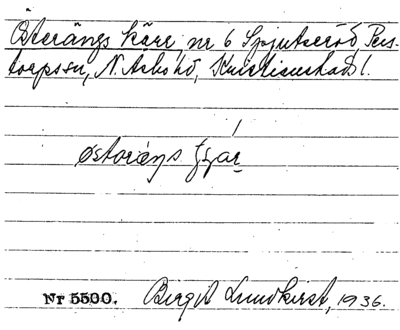 Österängs kärr, nr 6 Spjutseröd, Pers-
torps sn, N. Åsbo hd, Kristianstads l.
østoräŋs
Nr 5500. Birgit Lundkvist, 1936.